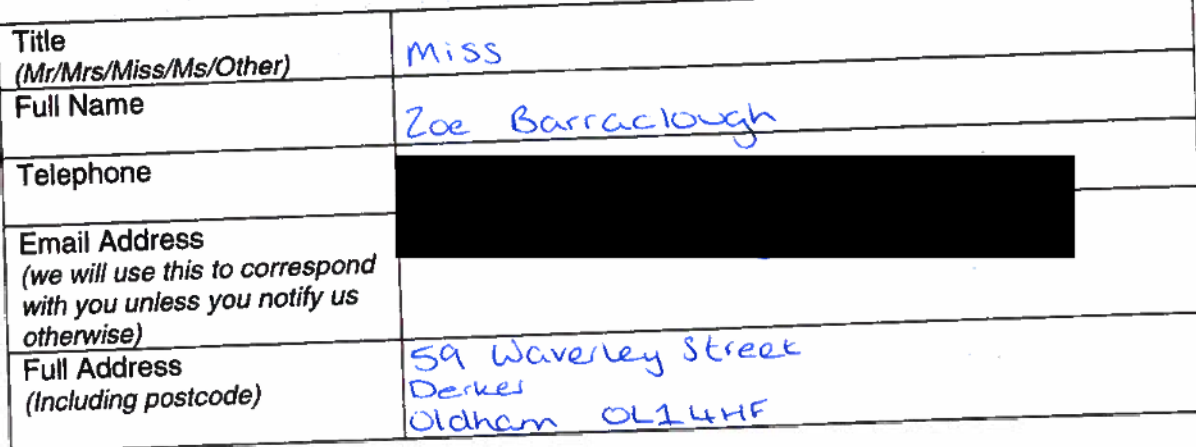 Title
(Mr/Mrs/Miss/Ms/Other)
Miss
Full Name
Zoe Barraclough
Telephone
Email Address
(we will use this to correspond
with you unless you notify us
otherwise)
Full Address
(Including postcode)
59 Waverley Street
Derker
Oldham OL1 4HF